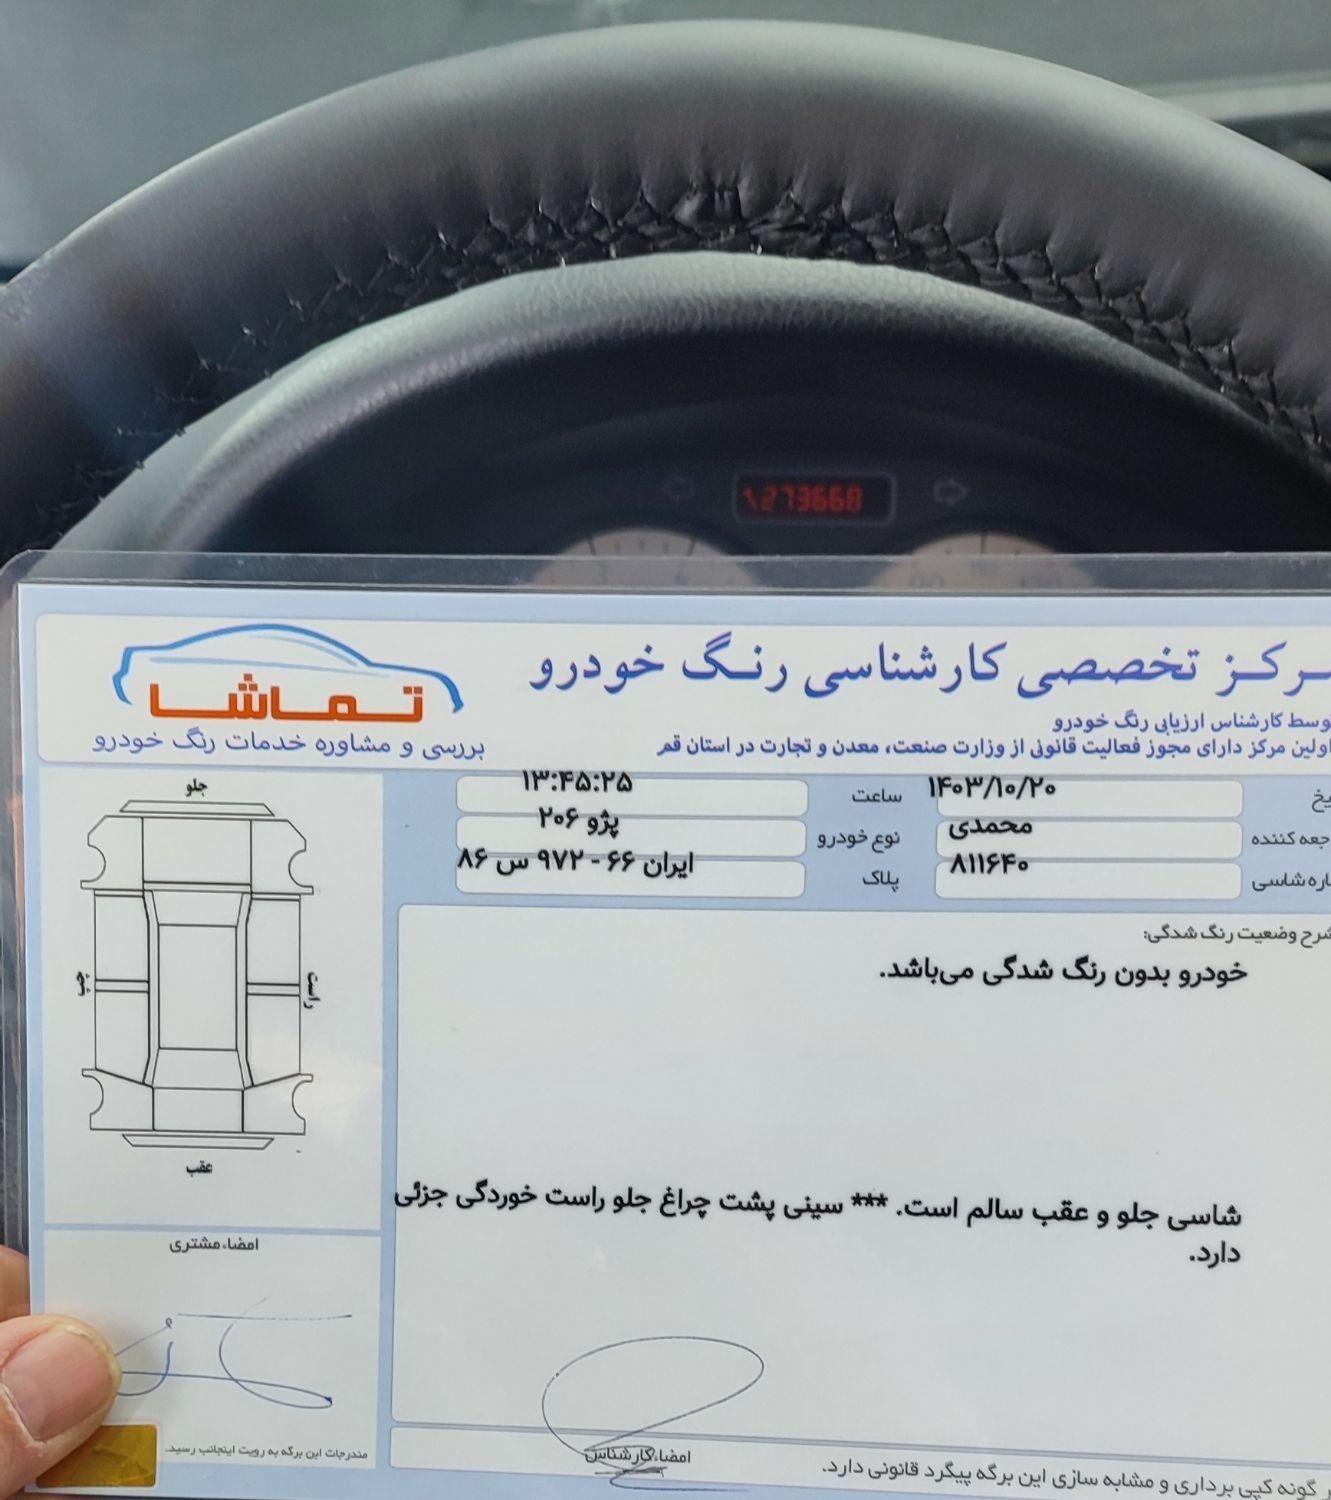 273668
تماشا
بررسی و مشاوره خدمات رنگ خودرو
مرکز تخصصی کارشناسی رنگ خودرو
توسط کارشناس ارزیابی رنگ خودرو
اولین مرکز دارای مجوز فعالیت قانونی از وزارت صنعت، معدن و تجارت در استان قم
۱۴۰۳/۱۰/۲۰ ساعت ۱۳:۴۵:۲۵
جعه کننده محمدی نوع خودرو پژو ۲۰۶
شاسی ۸۱۱۶۴۰ پلاک ایران ۶۶ - ۹۷۲ س ۸۶
شرح وضعیت رنگ شدگی:
خودرو بدون رنگ شدگی می‌باشد.
شاسی جلو و عقب سالم است. *** سینی پشت چراغ جلو راست خوردگی جزئی
دارد.
جلو
چپ
راست
عقب
امضاء مشتری
مندرجات این برگه به رویت اینجانب رسید.
امضاء کارشناس
گونه کپی برداری و مشابه سازی این برگه پیگرد قانونی دارد.